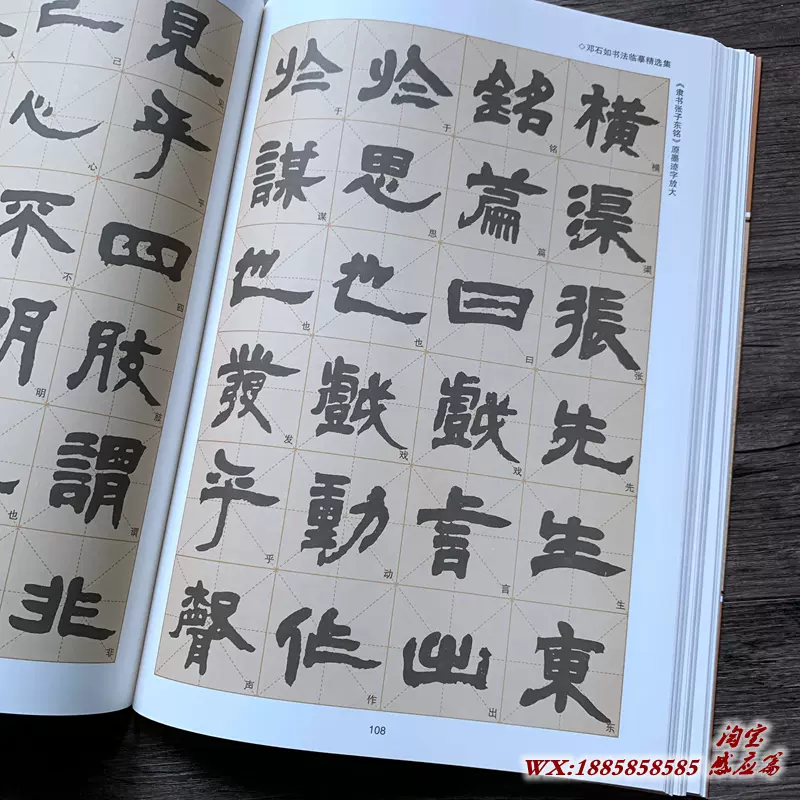 ◇邓石如书法临摹精选集
《隶书张子东铭》原墨迹字放大
橫渠張先生東
横渠张先生东
銘篇曰戲言出
铭篇曰戏言出
於思也戲動作
于思也戏动作
於謀也發乎聲
于谋也发乎声
見乎四肢謂非
见乎四肢谓非
己心不明
己心不明也
人
108
淘宝
感应篇
WX:1885858585